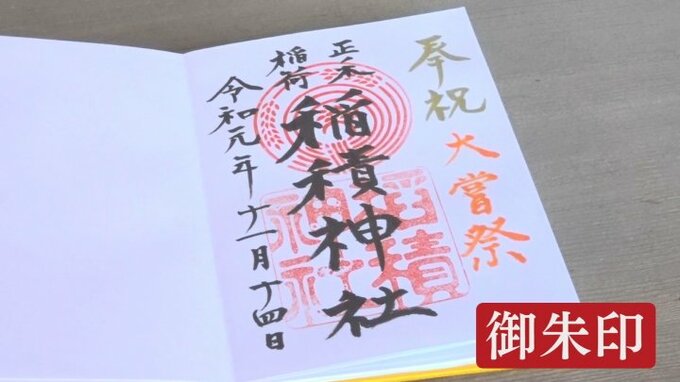 奉祝
大嘗祭
正ノ木
稲荷
稲積神社
令和元年十一月十四日
稲積
神社
御朱印